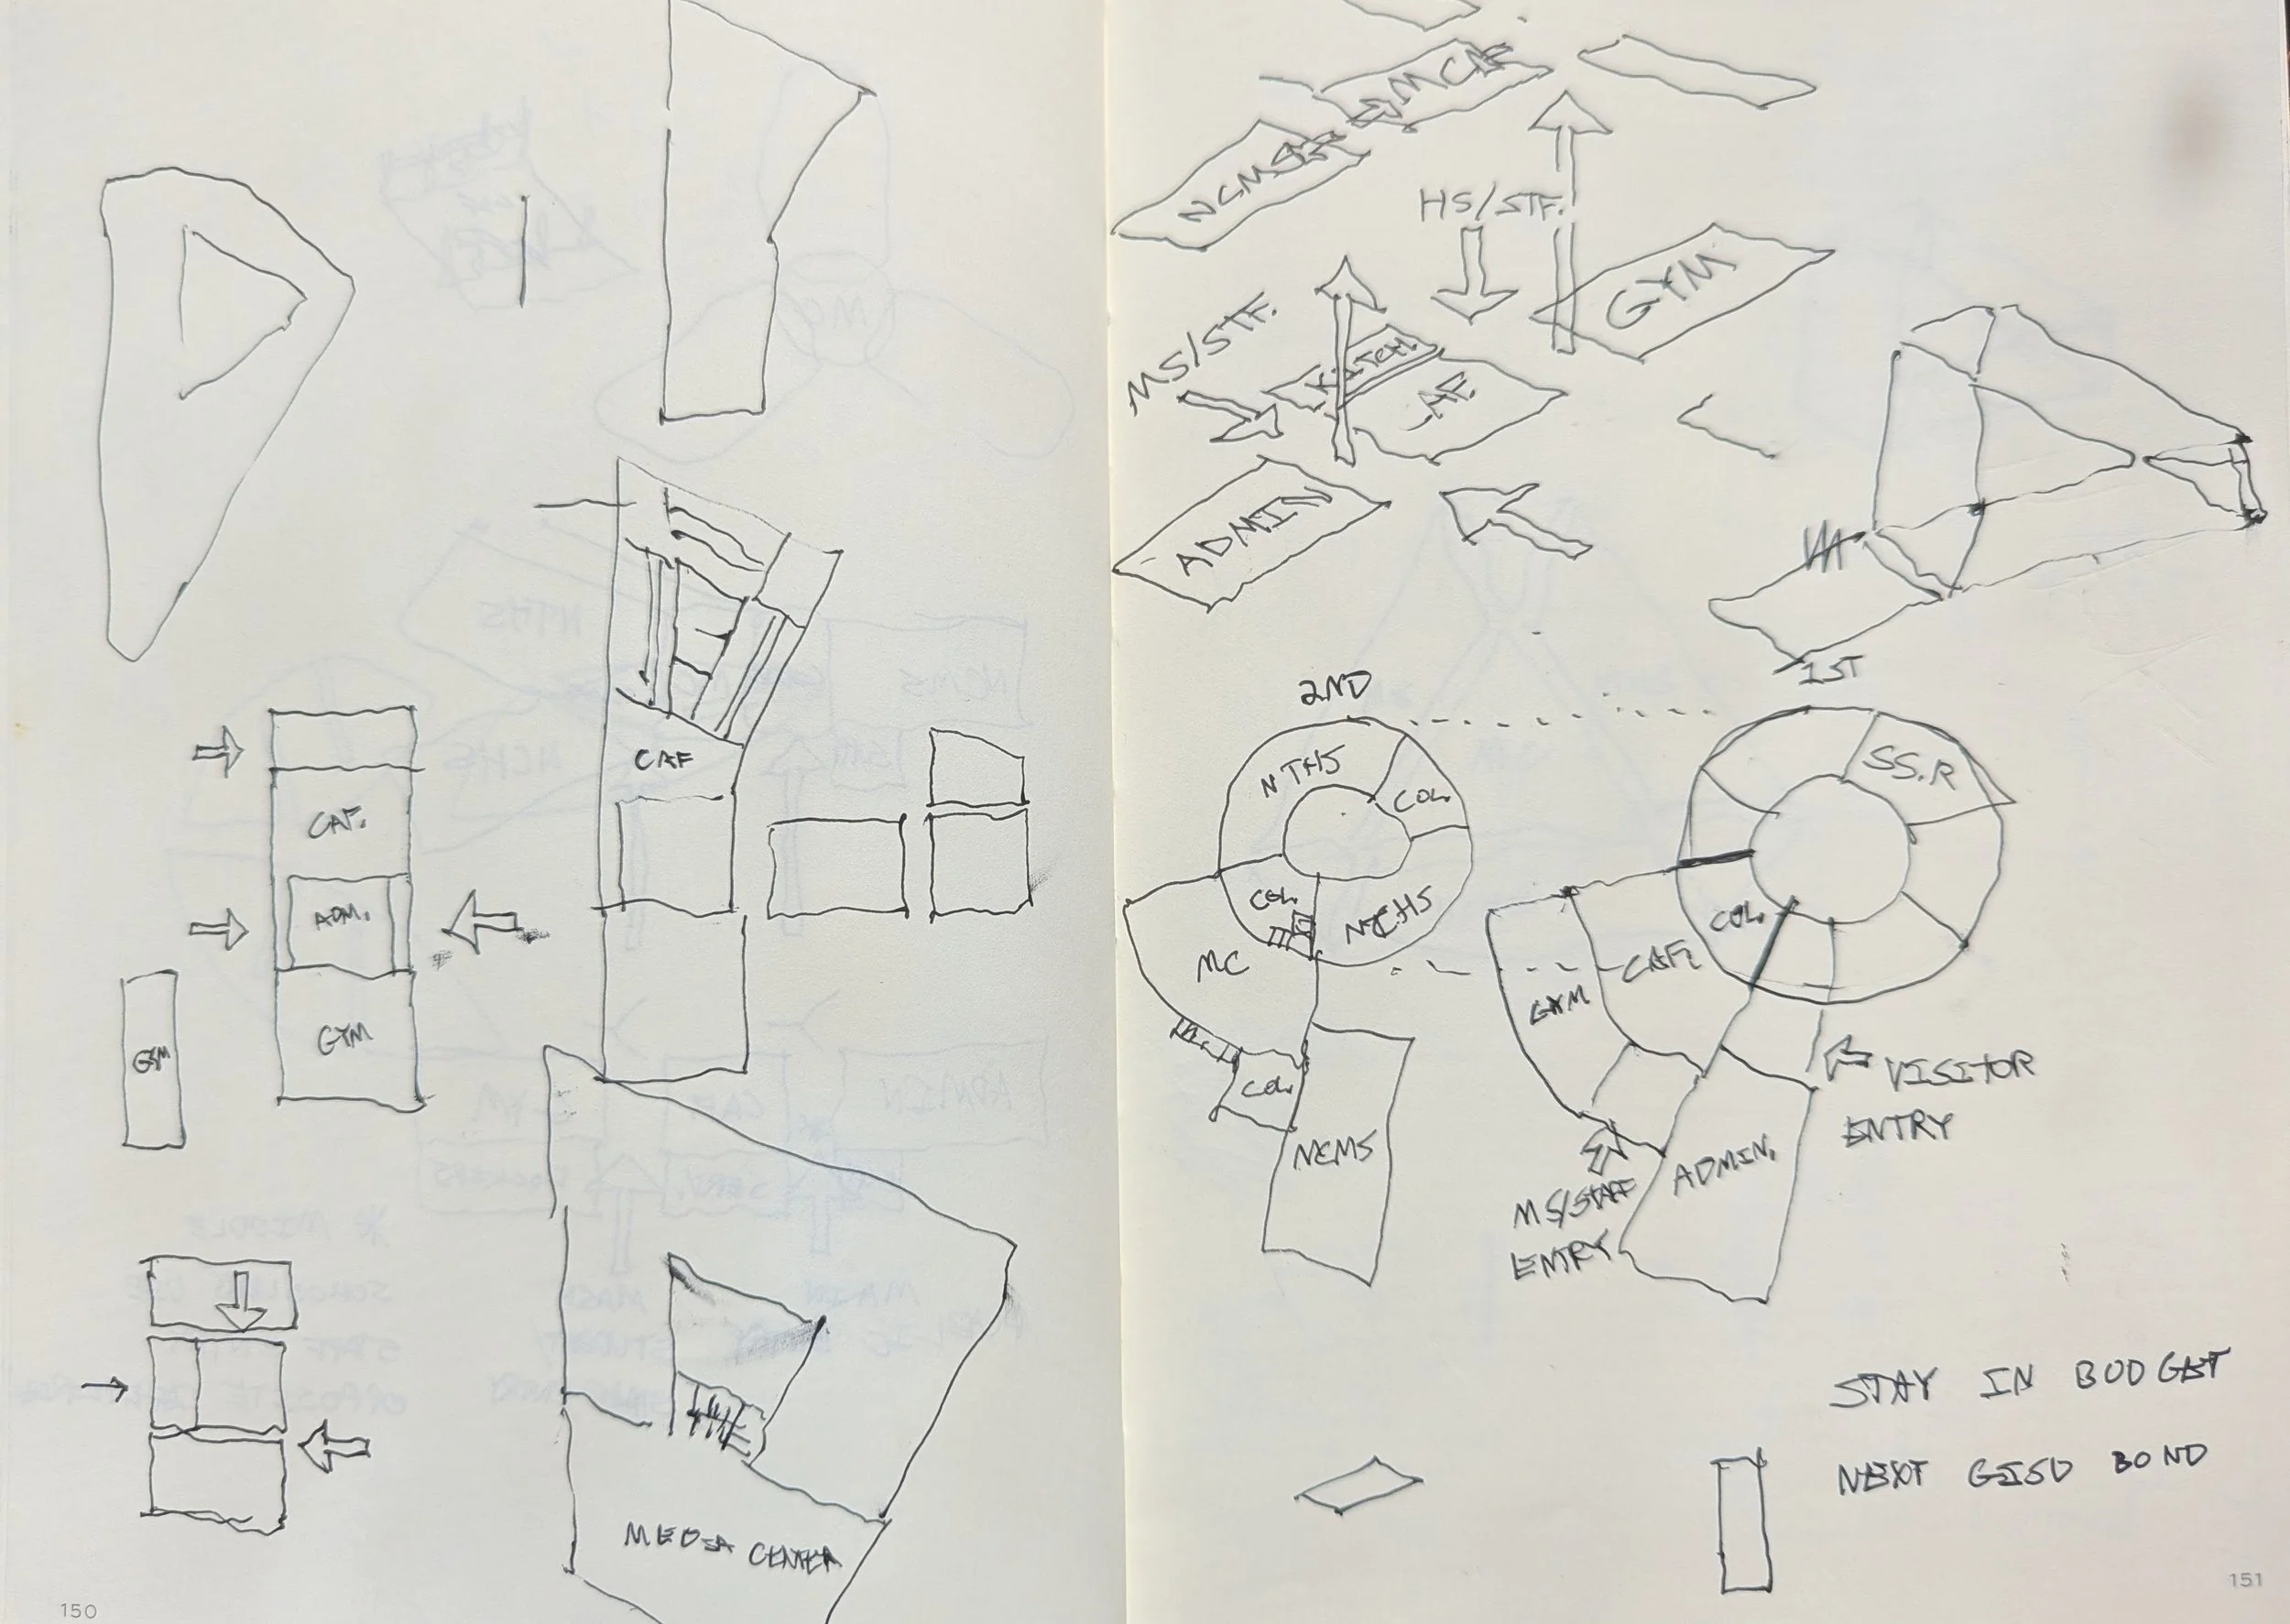 CAF
CAF.
ADM.
GYM
GYM
MEDIA CENTER
150
NCMS
HS/STF.
GYM
MS/STF.
KITCH.
ADMIN
2ND
NTHS
COL.
COL.
MC
COL.
NCMS
1ST
SS.R
COL.
CAF.
GYM
VISITOR
ENTRY
ADMIN.
MS/STAFF
ENTRY
STAY IN BUDGET
NEXT GISD BOND
151